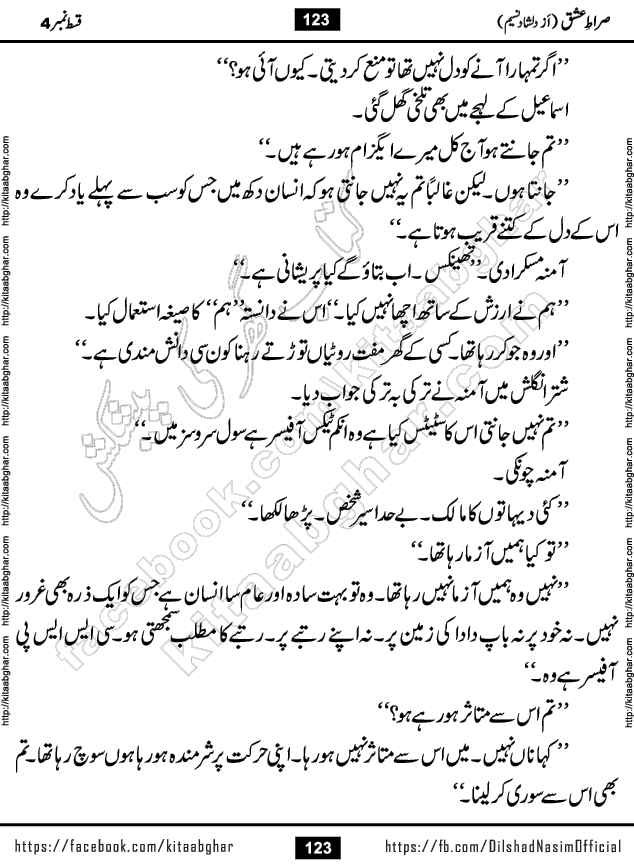 صراطِ عشق (از دلشاد نسیم)
123
قسط نمبر 4
’’اگر تمہارا آنے کو دل نہیں تھا تو منع کر دیتی۔ کیوں آئی ہو؟‘‘
اسماعیل کے لہجے میں بھی تلخی گھل گئی۔
’’تم جانتے ہو آج کل میرے ایگزام ہو رہے ہیں۔‘‘
’’جانتا ہوں۔ لیکن غالباً تم یہ نہیں جانتی ہو کہ انسان دکھ میں جس کو سب سے پہلے یاد کرے وہ
اس کے دل کے کتنے قریب ہوتا ہے۔‘‘
آمنہ مسکرا دی۔ ’’تھینکس۔ اب بتاؤ گے کیا پریشانی ہے۔‘‘
’’ہم نے ارزش کے ساتھ اچھا نہیں کیا۔‘‘ اس نے دانستہ ’’ہم‘‘ کا صیغہ استعمال کیا۔
’’اور وہ جو کر رہا تھا۔ کسی کے گھر مفت روٹیاں توڑتے رہنا کون سی دانش مندی ہے۔‘‘
شتر انگلش میں آمنہ نے ترکی بہ ترکی جواب دیا۔
’’تم نہیں جانتی اس کا سٹیٹس کیا ہے وہ انکم ٹیکس آفیسر ہے سول سروسز میں۔‘‘
آمنہ چونکی۔
’’کئی دیہاتوں کا مالک۔ بے حد امیر شخص۔ پڑھا لکھا۔‘‘
’’تو کیا ہمیں آزما رہا تھا۔‘‘
’’نہیں وہ ہمیں آزما نہیں رہا تھا۔ وہ تو بہت سادہ اور عام سا انسان ہے جس کو ایک ذرہ بھی غرور
نہیں۔ نہ خود پر نہ باپ دادا کی زمین پر۔ نہ اپنے رتبے پر۔ رتبے کا مطلب سمجھتی ہو۔ سی ایس ایس پی
آفیسر ہے وہ۔‘‘
’’تم اس سے متاثر ہو رہے ہو؟‘‘
’’کہا ناں نہیں۔ میں اس سے متاثر نہیں ہو رہا۔ اپنی حرکت پر شرمندہ ہو رہا ہوں سوچ رہا تھا۔ تم
بھی اس سے سوری کر لینا۔‘‘
کتاب گھر کی پیشکش
facebook.com/kitaabghar
kitaabghar.com
http://kitaabghar.com http://kitaabghar.com http://kitaabghar.com http://kitaabghar.com http://kitaabghar.com http://kitaabghar.com
http://kitaabghar.com http://kitaabghar.com http://kitaabghar.com http://kitaabghar.com http://kitaabghar.com http://kitaabghar.com
https://facebook.com/kitaabghar
123
https://fb.com/DilshadNasimOfficial